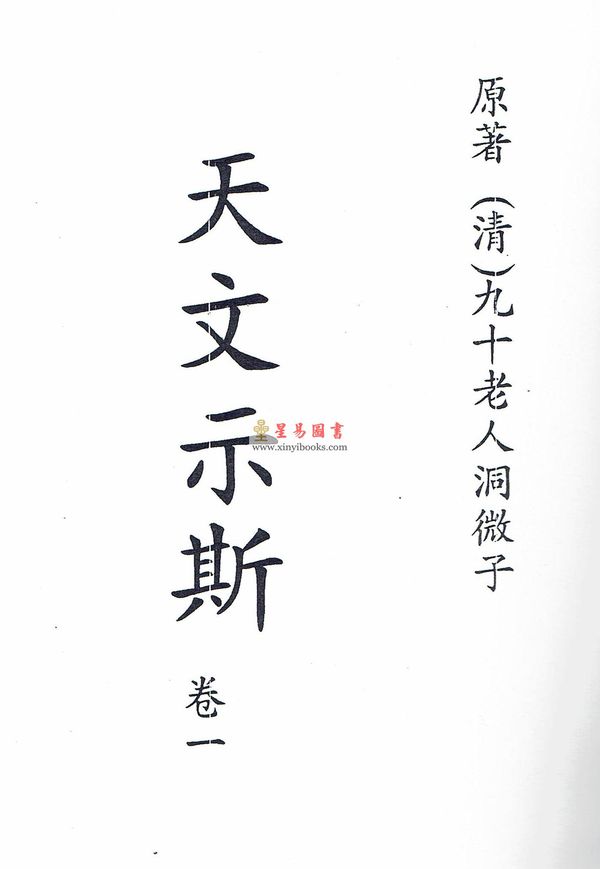 原著（清）九十老人洞微子
天文示斯
卷一
星易圖書
www.xinyibooks.com